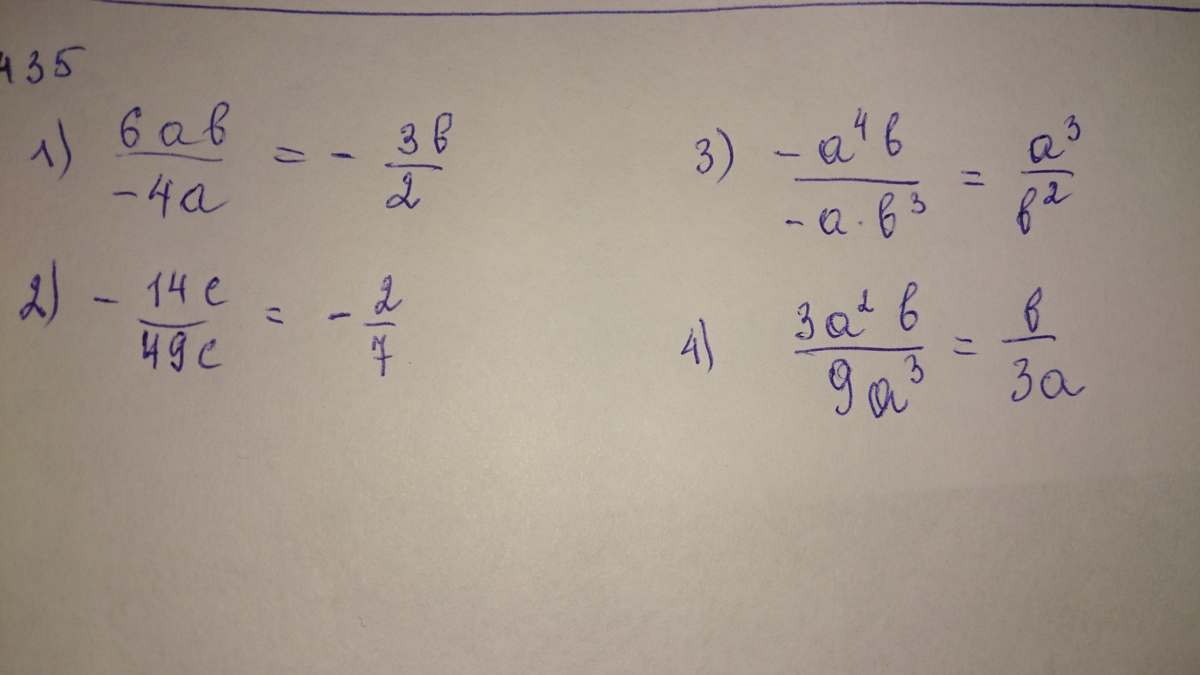 435
1) 6ab / -4a = - 3b / 2
2) - 14c / 49c = - 2 / 7
3) -a⁴b / -a·b³ = a³ / b²
4) 3a²b / 9a³ = b / 3a